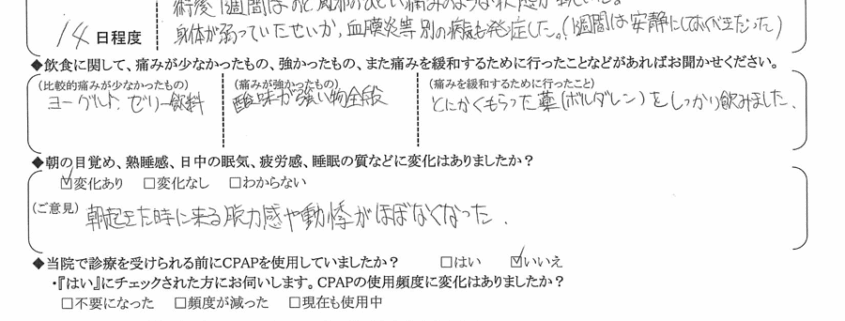 術後1週間は
身体が弱っていたせいか、血膜炎等別の病気も発症した。(1週間は安静にしておくべきだった)
14日程度
◆飲食に関して、痛みが少なかったもの、強かったもの、また痛みを緩和するために行ったことなどがあればお聞かせください。
(比較的痛みが少なかったもの) (痛みが強かったもの) (痛みを緩和するために行ったこと)
ヨーグルト、ゼリー飲料 酸味が強い物全般 とにかくもらった薬(ボルタレン)をしっかり飲みました。
◆朝の目覚め、熟睡感、日中の眠気、疲労感、睡眠の質などに変化はありましたか?
☑変化あり □変化なし □わからない
(ご意見) 朝起きた時に来る脱力感や動悸がほぼなくなった。
◆当院で診療を受けられる前にCPAPを使用していましたか? □はい ☑いいえ
・『はい』にチェックされた方にお伺いします。CPAPの使用頻度に変化はありましたか?
□不要になった □頻度が減った □現在も使用中